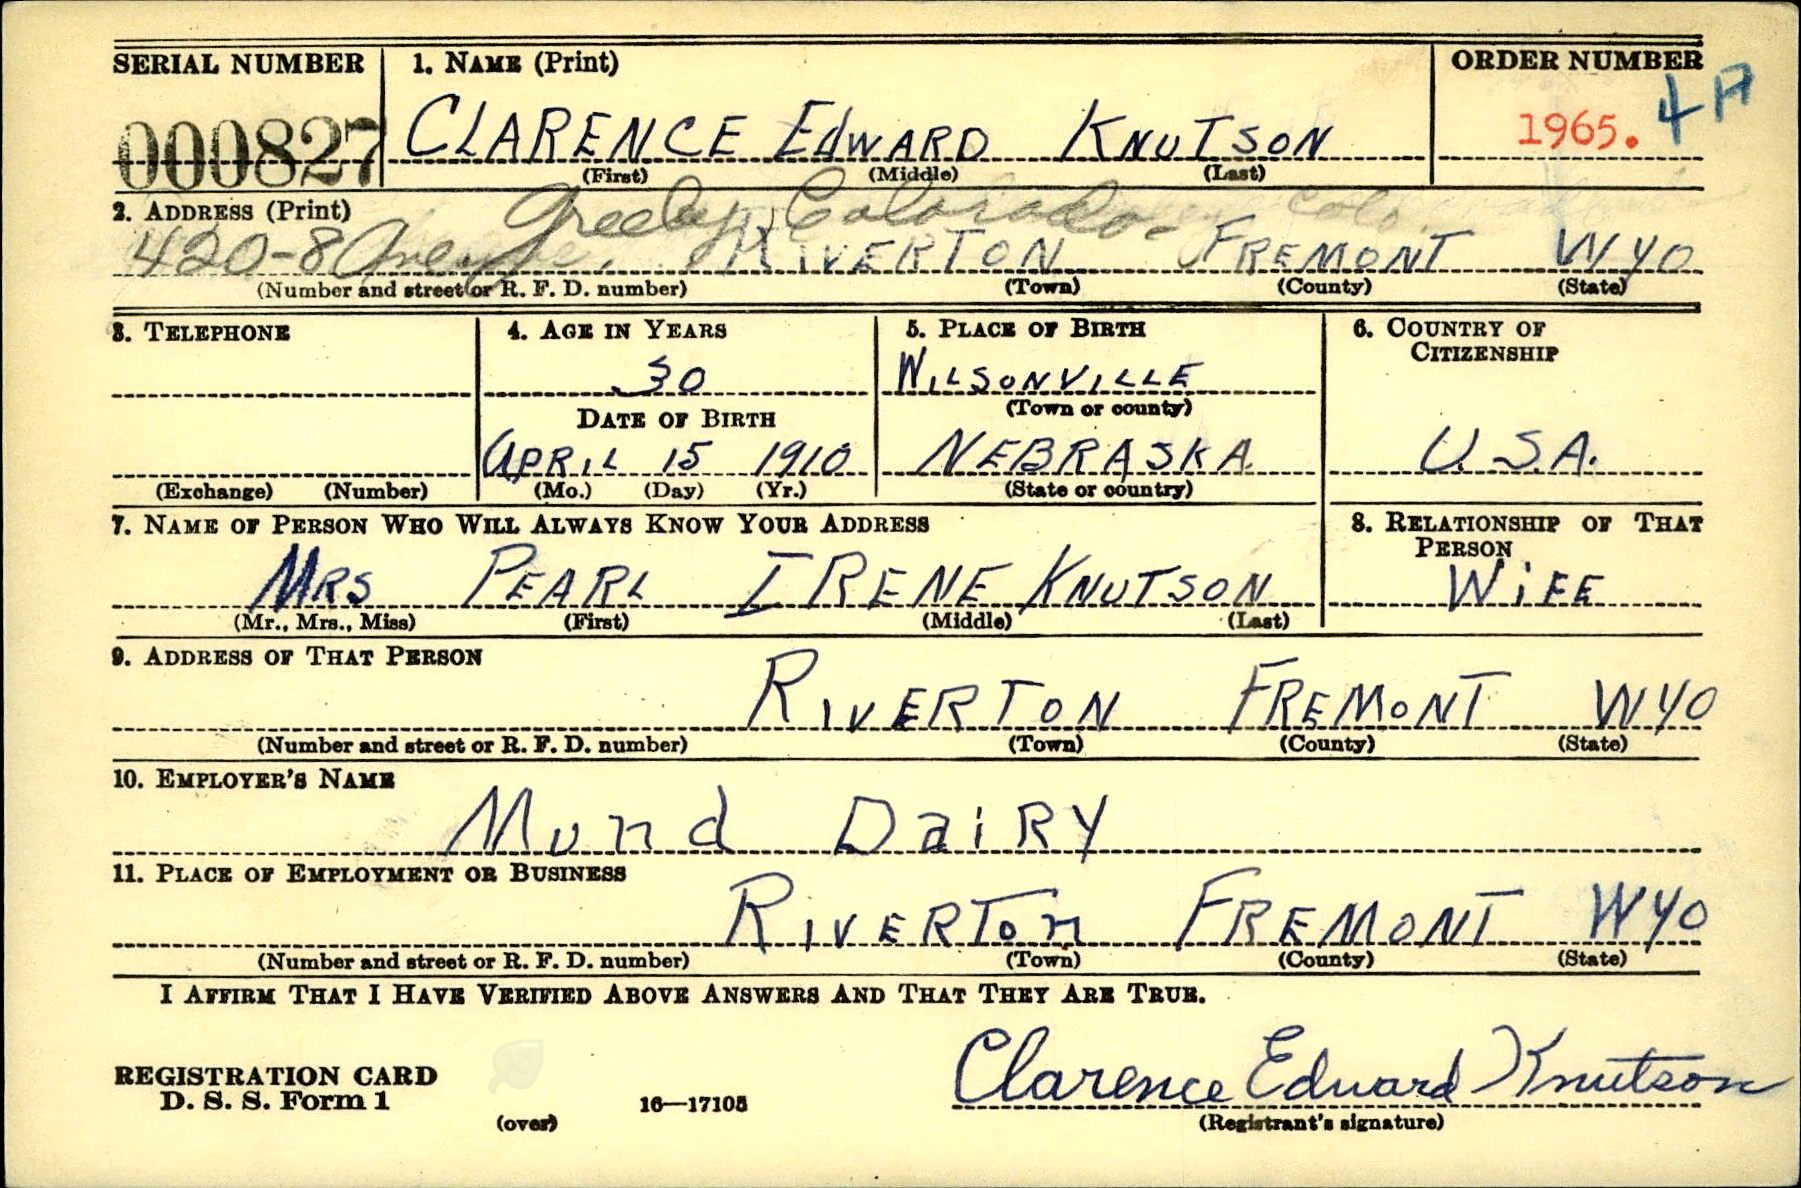 SERIAL NUMBER 1. NAME (Print) ORDER NUMBER
000827 CLARENCE EDWARD KNUTSON 1965. 4A
(First) (Middle) (Last)
2. ADDRESS (Print) Greeley, Colorado-
420-8 Avenue, RIVERTON FREMONT WYO
(Number and street or R. F. D. number) (Town) (County) (State)
3. TELEPHONE 4. AGE IN YEARS 5. PLACE OF BIRTH 6. COUNTRY OF
CITIZENSHIP
30 WILSONVILLE
DATE OF BIRTH (Town or county)
APRIL 15 1910 NEBRASKA U.S.A.
(Exchange) (Number) (Mo.) (Day) (Yr.) (State or country)
7. NAME OF PERSON WHO WILL ALWAYS KNOW YOUR ADDRESS 8. RELATIONSHIP OF THAT
PERSON
MRS PEARL IRENE KNUTSON WiFE
(Mr., Mrs., Miss) (First) (Middle) (Last)
9. ADDRESS OF THAT PERSON
RIVERTON FREMONT WYO
(Number and street or R. F. D. number) (Town) (County) (State)
10. EMPLOYER'S NAME
Mund DaiRY
11. PLACE OF EMPLOYMENT OR BUSINESS
RIVERTon FREMONT WYO
(Number and street or R. F. D. number) (Town) (County) (State)
I AFFIRM THAT I HAVE VERIFIED ABOVE ANSWERS AND THAT THEY ARE TRUE.
Clarence Edward Knutson
REGISTRATION CARD
D. S. S. Form 1 16—17105
(over) (Registrant's signature)